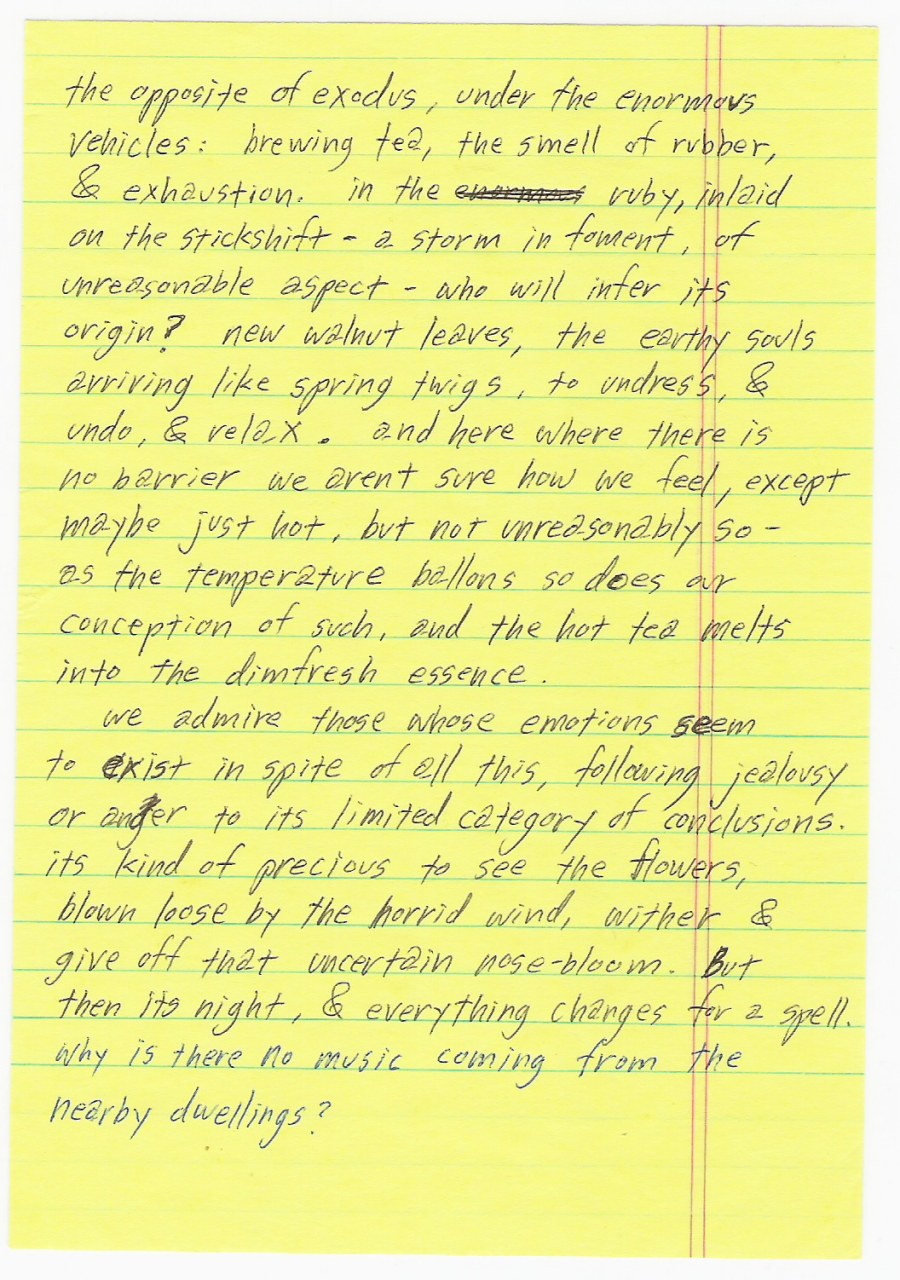 the opposite of exodus, under the enormous
vehicles: brewing tea, the smell of rubber,
& exhaustion. in the enormous ruby, inlaid
on the stickshift - a storm in foment, of
unreasonable aspect - who will infer its
origin? new walnut leaves, the earthy souls
arriving like spring twigs, to undress, &
undo, & relax. and here where there is
no barrier we arent sure how we feel, except
maybe just hot, but not unreasonably so -
as the temperature ballons so does our
conception of such, and the hot tea melts
into the dimfresh essence.
we admire those whose emotions seem
to exist in spite of all this, following jealousy
or anger to its limited category of conclusions.
its kind of precious to see the flowers,
blown loose by the horrid wind, wither &
give off that uncertain nose-bloom. But
then its night, & everything changes for a spell.
why is there no music coming from the
nearby dwellings?